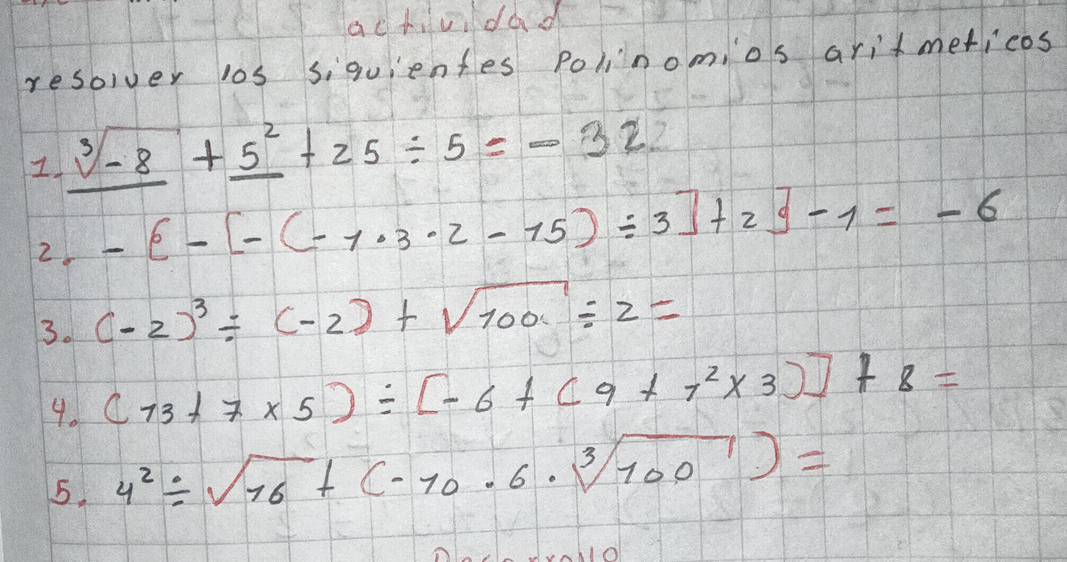 actividad
resolver los siguientes Polinomios aritmeticos
1. ∛-8 + 5² + 25 ÷ 5 = - 32
2. - { - [ - ( - 1 · 3 · 2 - 15 ) ÷ 3 ] + 2 } - 1 = - 6
3. (-2)³ ÷ (-2) + √100 ÷ 2 =
4. ( 13 + 7 x 5 ) ÷ [ - 6 + ( 9 + 1² x 3 ) ] + 8 =
5. 4² ÷ √16 + ( - 10 · 6 · ∛100 ) =
Desarrollo